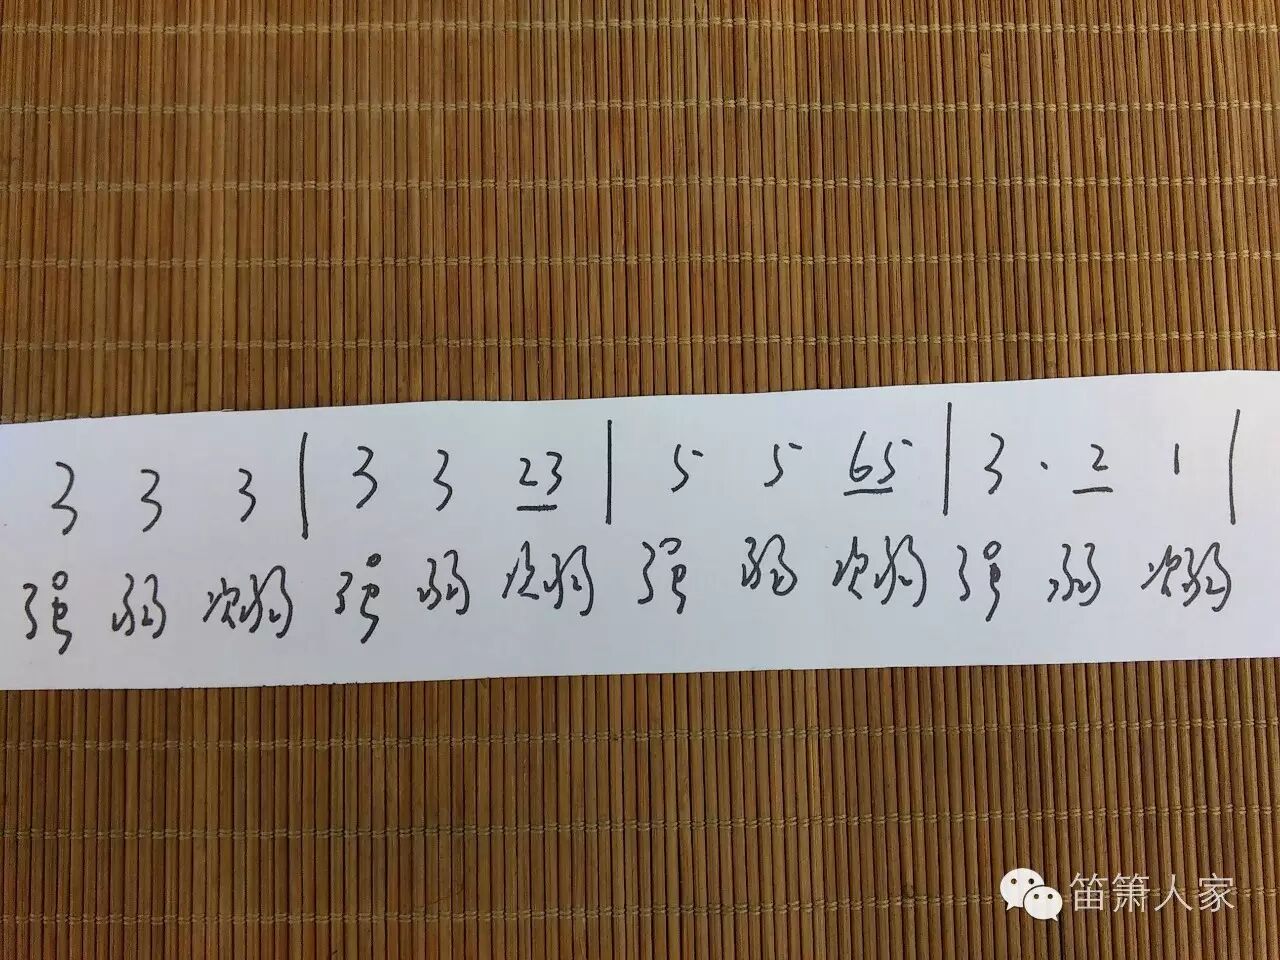 3 3 3 | 3 3 23 | 5 5 65 | 3 · 2 1 |
强 弱 次弱 强 弱 次弱 强 弱 次弱 强 弱 次弱
笛箫人家